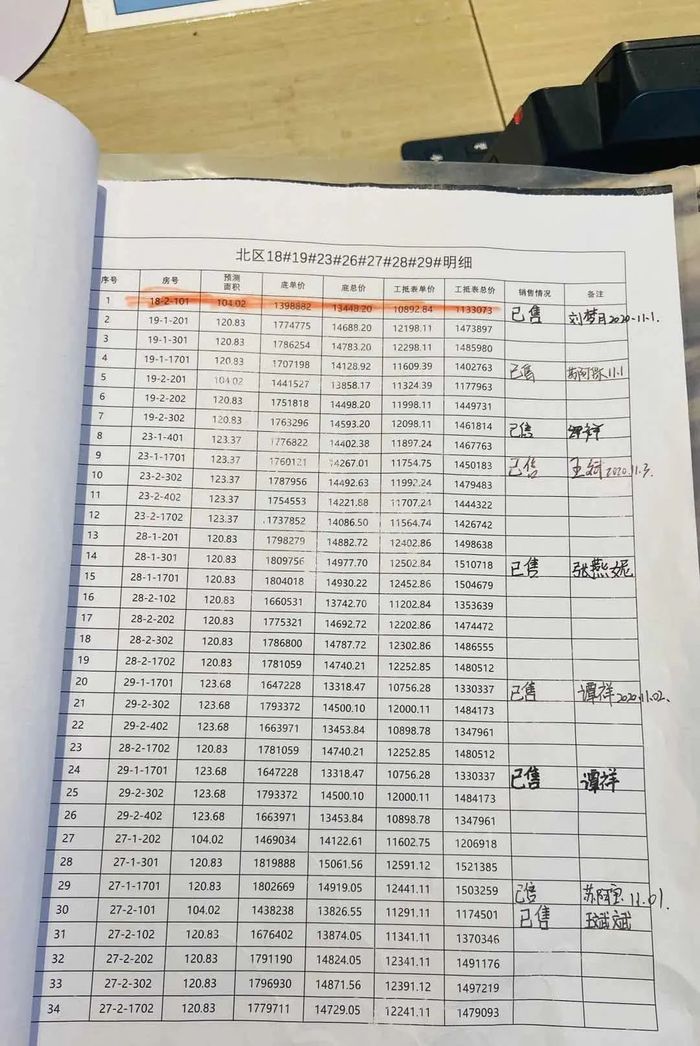 北区18#19#23#26#27#28#29#明细
序号 房号 预测面积 底单价 底总价 工抵表单价 工抵表总价 销售情况 备注
1 18-2-101 104.02 1398882 13448.20 10892.84 1133073 已售 刘梦月2020-11-1.
2 19-1-201 120.83 1774775 14688.20 12198.11 1473897
3 19-1-301 120.83 1786254 14783.20 12298.11 1485980
4 19-1-1701 120.83 1707198 14128.92 11609.39 1402763 已售 11.1
5 19-2-201 104.02 1441527 13858.17 11324.39 1177963
6 19-2-202 120.83 1751818 14498.20 11998.11 1449731
7 19-2-302 120.83 1763296 14593.20 12098.11 1461814 已售
8 23-1-401 123.37 1776822 14402.38 11897.24 1467763
9 23-1-1701 123.37 1760121 14267.01 11754.75 1450183 已售 王斌2020.11.3.
10 23-2-302 123.37 1787956 14492.63 11992.24 1479483
11 23-2-402 123.37 1754553 14221.88 11707.24 1444322
12 23-2-1702 123.37 1737852 14086.50 11564.74 1426742
13 28-1-201 120.83 1798279 14882.72 12402.86 1498638
14 28-1-301 120.83 1809756 14977.70 12502.84 1510718 已售 张燕妮
15 28-1-1701 120.83 1804018 14930.22 12452.86 1504679
16 28-2-102 120.83 1660531 13742.70 11202.84 1353639
17 28-2-202 120.83 1775321 14692.72 12202.86 1474472
18 28-2-302 120.83 1786800 14787.72 12302.86 1486555
19 28-2-1702 120.83 1781059 14740.21 12252.85 1480512
20 29-1-1701 123.68 1647228 13318.47 10756.28 1330337 已售 谭祥2020.11.02.
21 29-2-302 123.68 1793372 14500.10 12000.11 1484173
22 29-2-402 123.68 1663971 13453.84 10898.78 1347961
23 28-2-1702 120.83 1781059 14740.21 12252.85 1480512
24 29-1-1701 123.68 1647228 13318.47 10756.28 1330337 已售 谭祥
25 29-2-302 123.68 1793372 14500.10 12000.11 1484173
26 29-2-402 123.68 1663971 13453.84 10898.78 1347961
27 27-1-202 104.02 1469034 14122.61 11602.75 1206918
28 27-1-301 120.83 1819888 15061.56 12591.12 1521385
29 27-1-1701 120.83 1802669 14919.05 12441.11 1503259 已售 苏阿宝11.01.
30 27-2-101 104.02 1438238 13826.55 11291.11 1174501 已售
31 27-2-102 120.83 1676402 13874.05 11341.11 1370346
32 27-2-202 120.83 1791190 14824.05 12341.11 1491176
33 27-2-302 120.83 1796930 14871.56 12391.12 1497219
34 27-2-1702 120.83 1779711 14729.05 12241.11 1479093